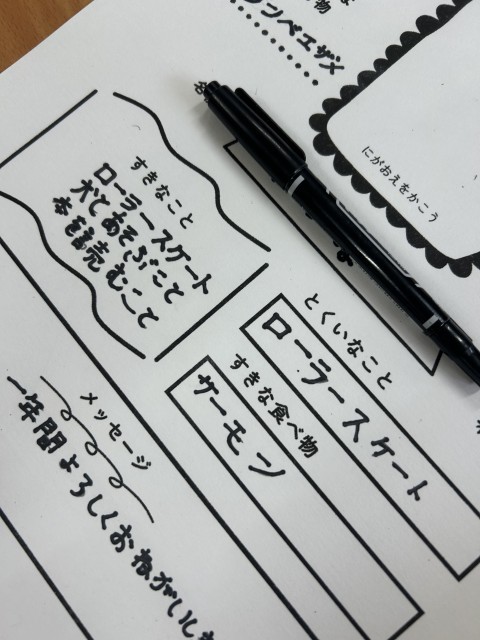 物
ンベエザメ
にがおえをかこう
すきなこと
ローラースケート
犬とあそぶこと
本を読むこと
とくいなこと
ローラースケート
すきな食べ物
サーモン
メッセージ
一年間よろしくおねがいしま